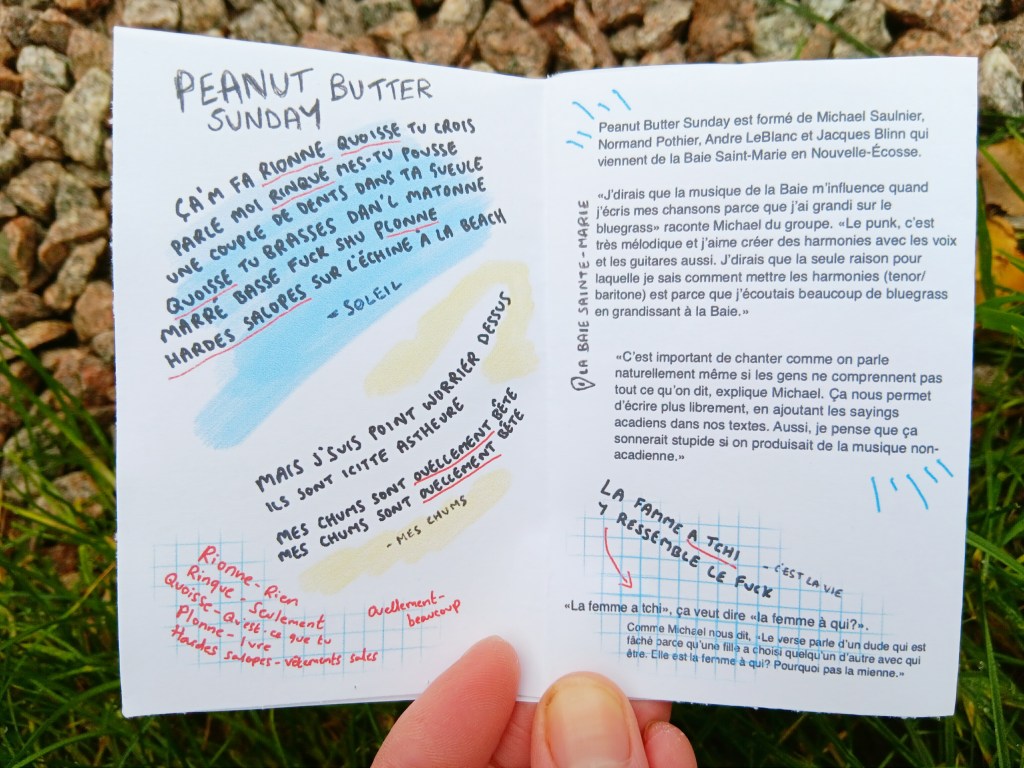 PEANUT BUTTER
SUNDAY
ÇA'M FA RIONNE QUOISSE TU CROIS
PARLE MOI RINQUE MES-TU POUSSE
UNE COUPLE DE DENTS DANS TA GUEULE
QUOISSE TU BRASSES DAN'L MATONNE
MARRE BASSE FUCK SHU PLONNE
HARDES SALOPES SUR L'ÉCHINE À LA BEACH
- SOLEIL
MAIS J'SUIS POINT WORRIER DESSUS
ILS SONT ICITTE ASTHEURE
MES CHUMS SONT OUELLEMENT BÊTE
MES CHUMS SONT OUELLEMENT BÊTE
- MES CHUMS
Rionne - Rien
Rinque - Seulement
Quoisse - Qu'est-ce que tu
Plonne - ivre
Hardes salopes - vêtements sales
Ouellement-
beaucoup
Peanut Butter Sunday est formé de Michael Saulnier,
Normand Pothier, Andre LeBlanc et Jacques Blinn qui
viennent de la Baie Saint-Marie en Nouvelle-Écosse.
LA BAIE SAINTE-MARIE
«J'dirais que la musique de la Baie m'influence quand
j'écris mes chansons parce que j'ai grandi sur le
bluegrass» raconte Michael du groupe. «Le punk, c'est
très mélodique et j'aime créer des harmonies avec les voix
et les guitares aussi. J'dirais que la seule raison pour
laquelle je sais comment mettre les harmonies (tenor/
baritone) est parce que j'écoutais beaucoup de bluegrass
en grandissant à la Baie.»
«C'est important de chanter comme on parle
naturellement même si les gens ne comprennent pas
tout ce qu'on dit, explique Michael. Ça nous permet
d'écrire plus librement, en ajoutant les sayings
acadiens dans nos textes. Aussi, je pense que ça
sonnerait stupide si on produisait de la musique non-
acadienne.»
LA FAMME A TCHI
Y RESSEMBLE LE FUCK
- C'EST LA VIE
«La femme a tchi», ça veut dire «la femme à qui?».
Comme Michael nous dit, «Le verse parle d'un dude qui est
fâché parce qu'une fille a choisi quelqu'un d'autre avec qui
être. Elle est la femme à qui? Pourquoi pas la mienne.»